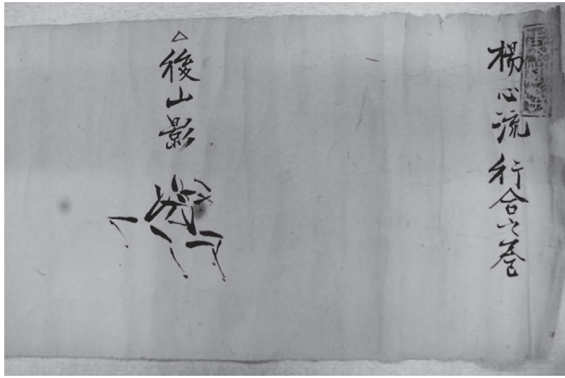 楊心流 行合之巻
△後山影